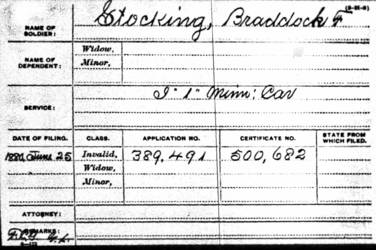 (3-111-8)
NAME OF SOLDIER: Stocking, Braddock F
NAME OF DEPENDENT: Widow,
Minor,
SERVICE: I" 1" Minn; Cav
DATE OF FILING. CLASS. APPLICATION NO. CERTIFICATE NO. STATE FROM WHICH FILED.
1880 June 25 Invalid, 389,491 500,682
Widow,
Minor,
ATTORNEY:
REMARKS: